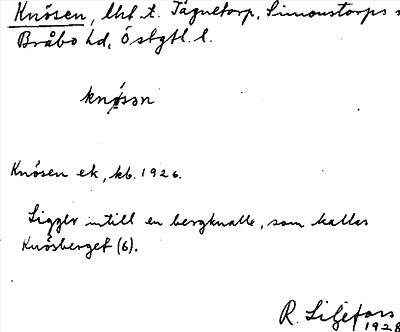 Knösen, lht t. Tägnetorp, Simonstorps s
Bråbo hd, Östgtl. l.
knǿsən
Knösen ek, kb. 1926.
Ligger intill en bergknalle, som kallas
Knösberget (6).
R. Liljefors
1928